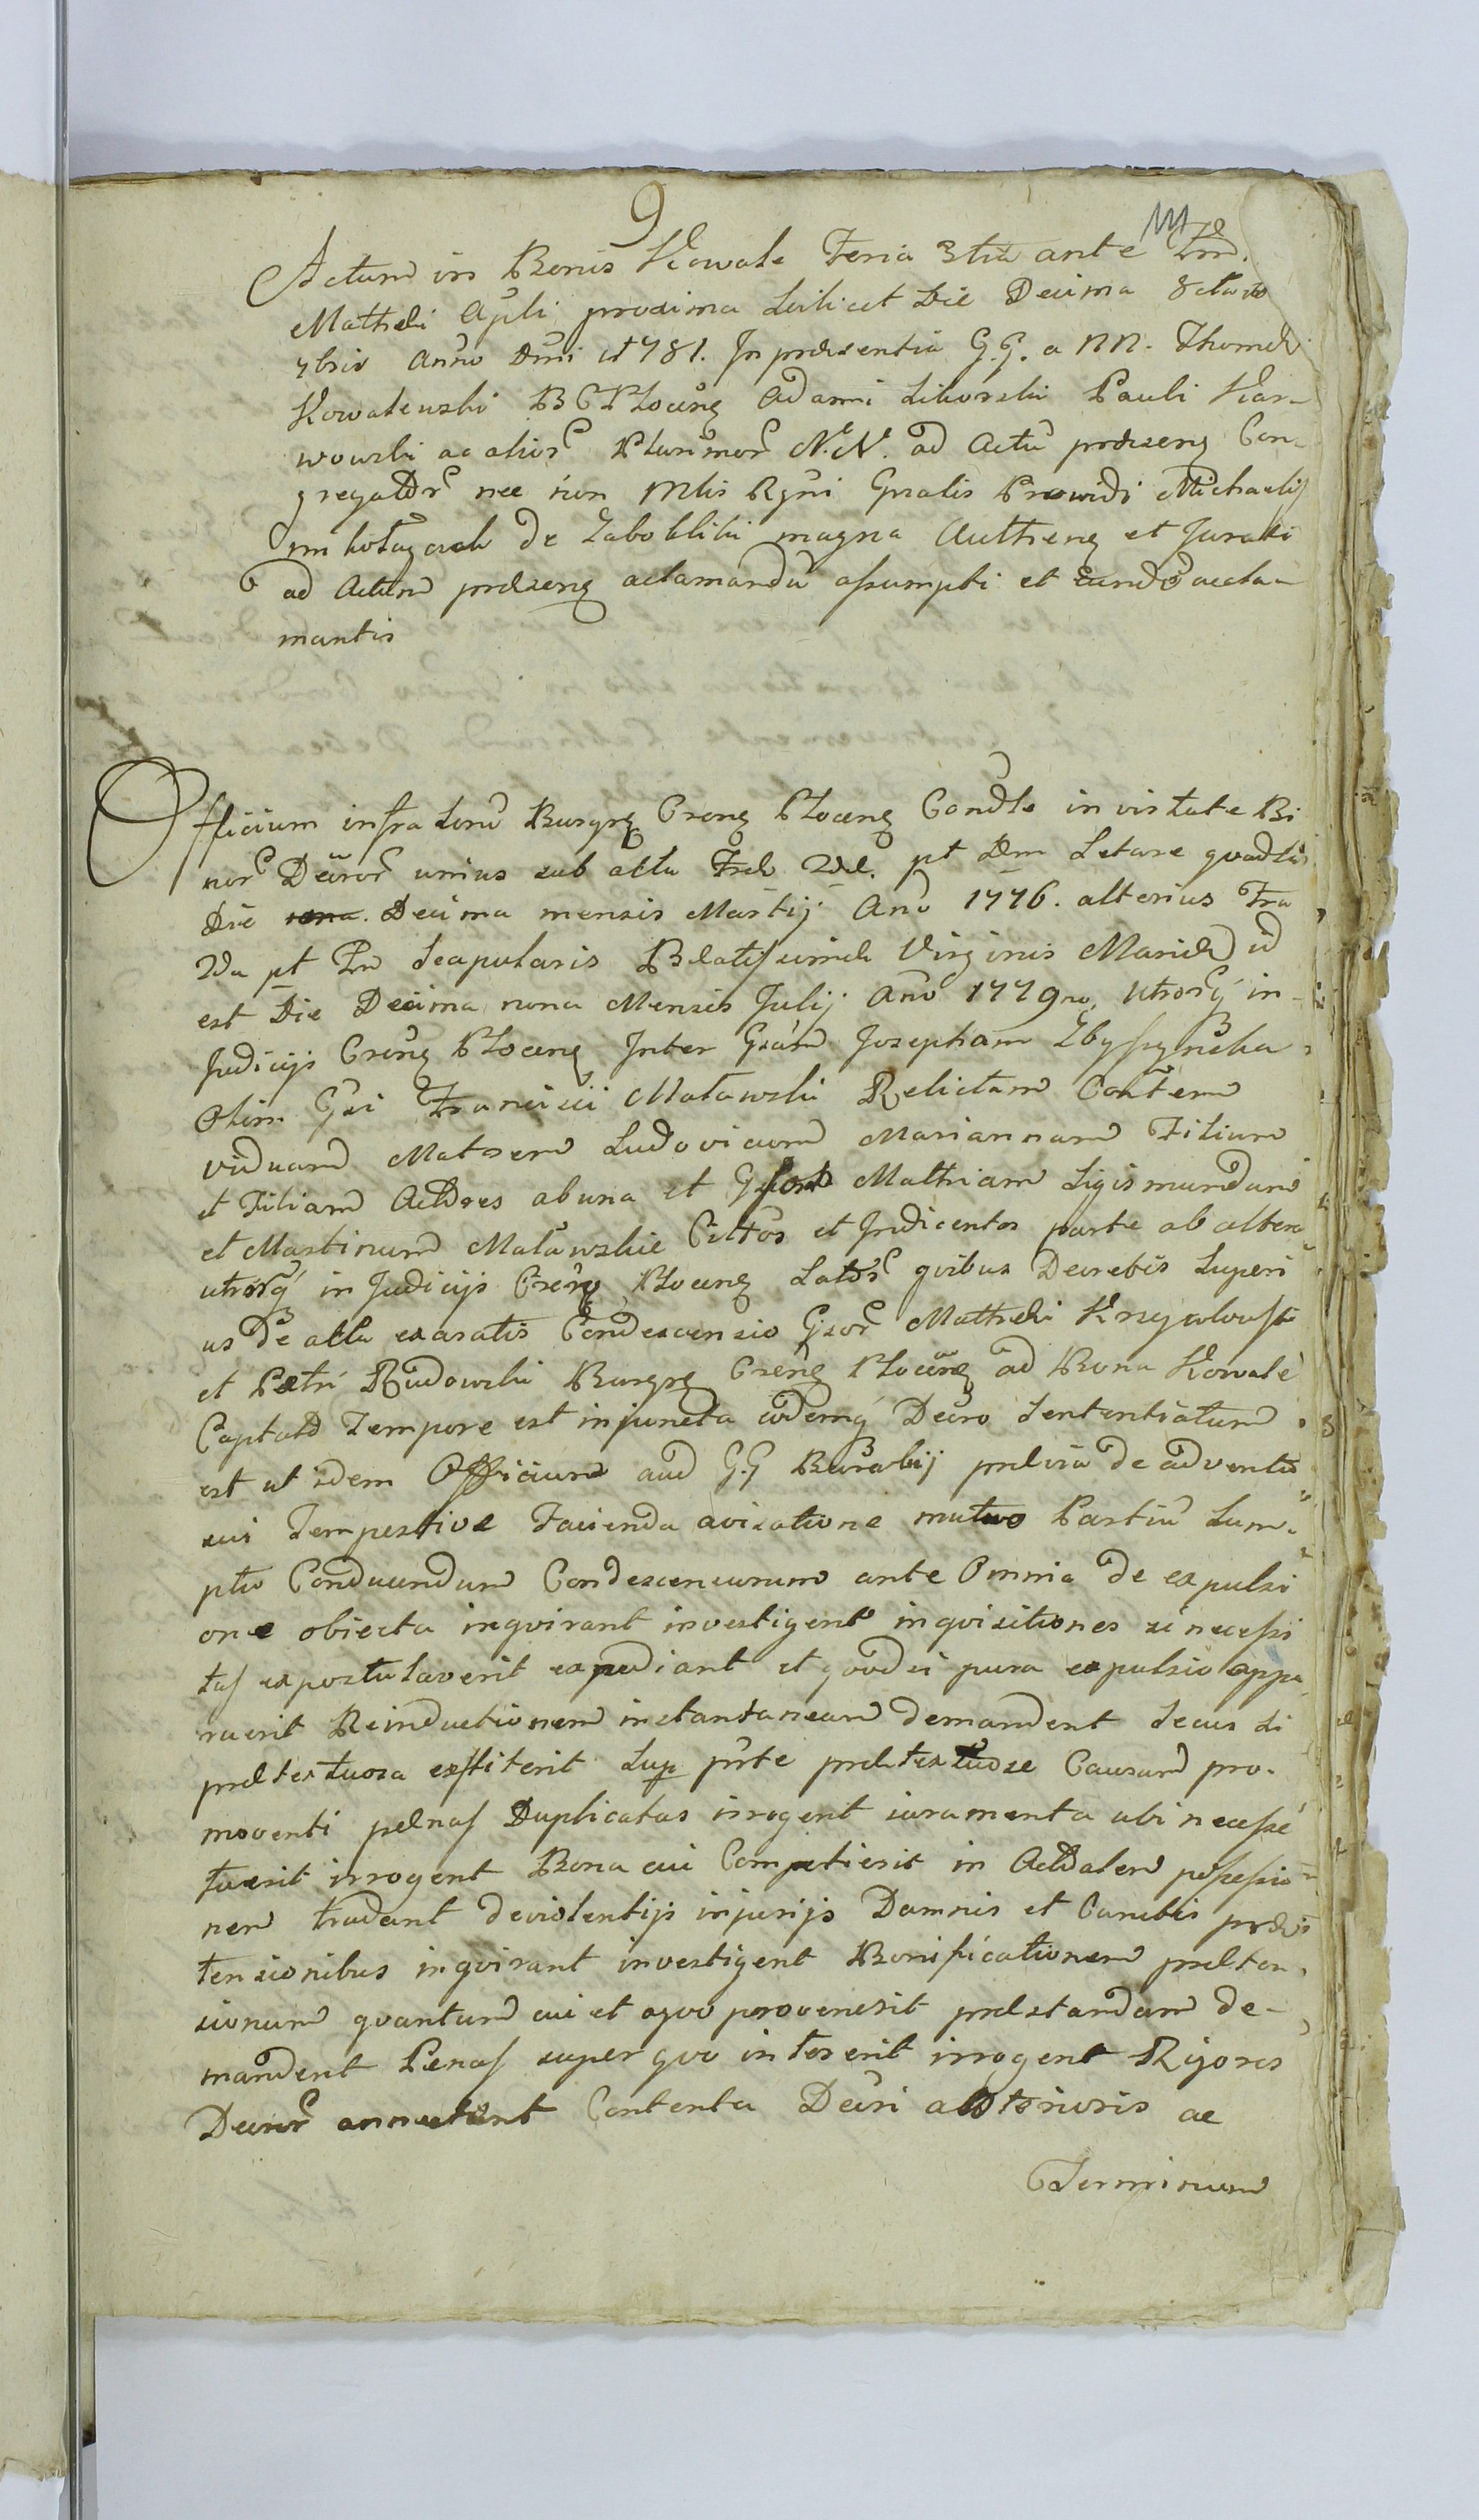 9
Actum in Bonis Kowale Feria 3tia ante Fm.
Mathaei Apli proxima Scilicet Die Decima 8ctava
7bris Anno Dni 1781. In praesentia G.G. a NN. Thomae
Kowalewski B C Plocens Adami Sikorski Pauli Kar-
wowski ac alior Plurimor N.N. ad Actu praesens Con-
gregator nec non Mlis Rgni Gnalis Providi Michaelis
de magna Authens et Jurati
ad Actum praesens aclamandu assumpti et eunde accla-
mantis
Officium infra Scru Burgrs Crens Plocens Condle in vistute Bi
nor Decror unius sub actu Frae 2dae. pt Dm Letare quadlis
Die Decima mensis Martij Ano 1776. alterius Fra
2da pt Fm Scapularis Beatissimae Virginis Mariae id
est Die Decima nona Mensis Julij Ano 1779no. Utrorq in
Judicijs Crens Plocens Inter Gsam Josepham Zbyszynska
Olim Gsi Francisci Malawski Relictam Contem
viduam Matrem Ludovicum Mariannam Filium
et Filiam Actores ab una et Gsos Mathiam Sigismundum
et Martinum Malawskie Cittos et Indicentos parte ab altera
utrorq in Judicijs Crens Plocens Lator quibus Decretis Superi
us de actu exaratis Condescensio Gsor Mathaei
et Petri Rudowski Burgrs Crens Plocens ad Bona Kowale
Captato Tempore est injuncta eodemq Decro Sententiatum
est ut idem Officium aut G.G Burabij praevia de adventu
sui Tempestive Facienda avisatione mutuo Partiu Sum-
ptu Conducendum Condescensurum ante Omnia de expulsi
one obiecta inquirant investigent inquisitiones si necessi
tas expostulaverit expediant et quod si pura expulsio appa
ruerit Reinductionem instantaneam demandent Secus Si
praetextuosa exstiterit Sup prte praetextuose Causam pro-
moventi paenas Duplicatas irrogent iuramenta ubi necesse
fuerit irrogent Bona cui Competierit in Actualem possessio
nem tradant de violentijs injurijs Damnis et Cunctis prae
tensionibus inquirant investigent Bonificationem praeten-
sionum quantum cui et a quo provenerit praestandam de-
mandent Penas super quo intererit irrogent Rigores
Decror annectent Contenta Decri anterioris ac
Terminum